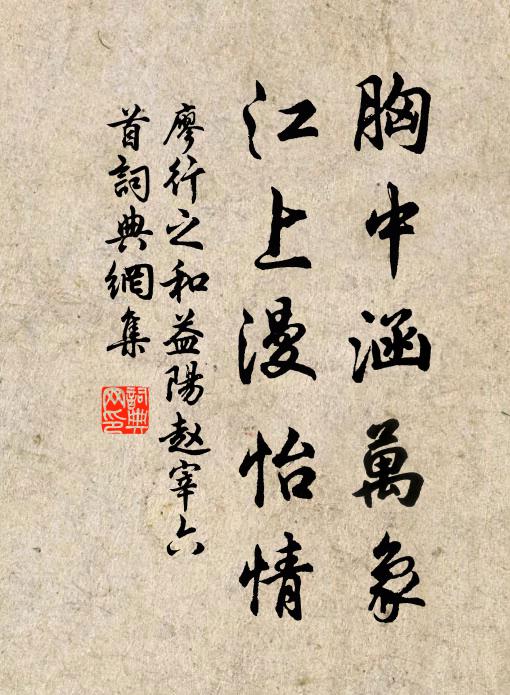 胸中涵萬象
江上漫怡情
廖行之和益陽赵宰六
首詞典網集
詞典
网印